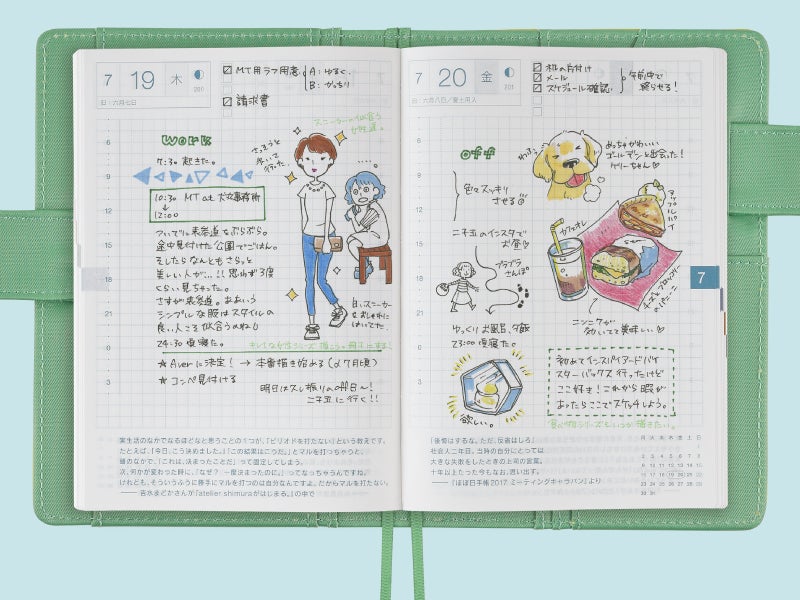 7 19 木 201
日：六月七日
☑ MT用ラフ用意 A：ゆるく。
B：がっちり
☑ 請求書
スニーカーの似合う
女性達。
さっそうと
歩いて
行った。
work
7:30 起きた。
10:30 MT at 大女事務所
↓
12:00
ついでに表参道をぶらぶら。
途中見付けた公園でごはん。
そしたらなんともさらっと
美しい人が…!! 思わず3度
くらい見ちゃった。
さすが表参道。ああいう
シンプルな服はスタイルの
良い人こそ似合うのね
24:30 頃寝た。
白いスニーカー
をおしゃれに
はいてた。
キレイな女性シリーズ 描こう。冊子にする!
★ Averに決定! → 本番描き始める(〆7月頃)
★ コンペ見付ける
明日は久し振りのoff日〜!
二子玉に行く!!
実生活のなかでなるほどなと思うことの1つが、「ピリオドを打たない」という教えです。
たとえば、「今日、こう決めました。」「この結果はこうだ」とマルを打つちゃうと、
頭のなかで、「これは、決まったことだ」って固定してしまう。
次、何かが変わった時に、「なぜ？一度決まったのに。」ってなっちゃうんですね。
けれども、そういうふうに勝手にマルを打つのは自分なんですよ。だからマルを打たない。
——吉水まどかさんが『atelier shimuraがはじまる。』の中で
7 20 金 201
日：六月八日／夏土用入
☑ 机の片付け
☑ メール
☑ スケジュール確認
午前中で
終らせる!
off
わふっ
めっちゃかわいい
ゴールデンと出会った!
ゲリーちゃん
色々スッキリ
させる
二子玉のインスタで
お昼
ブラブラ
さんぽ。
カフェオレ
アップルパイ
チーズとブロッコリー
のパニーニ
ニンニクが
効いてて美味しい
ゆっくりお風呂、夕飯
23:00 頃寝た。
欲しい。
初めてインスパイアードバイ
スターバックス 行ったけど
ここ好き! これから暇が
あったらここでスケッチしよう。
食べ物シリーズというか描きたい。
7
「後悔はするな。ただ、反省はしろ」
社会人二年目。当時の自分にとっては
大きな失敗をしたときの上司の言葉。
十年以上たった今もなお、思い出す。
——『ほぼ日手帳2017 ミーティングキャラバン』より
月 火 水 木 金 土 日
1
2 3 4 5 6 7 8
9 10 11 12 13 14 15
16 17 18 19 20 21 22
23 24 25 26 27 28 29
30 31